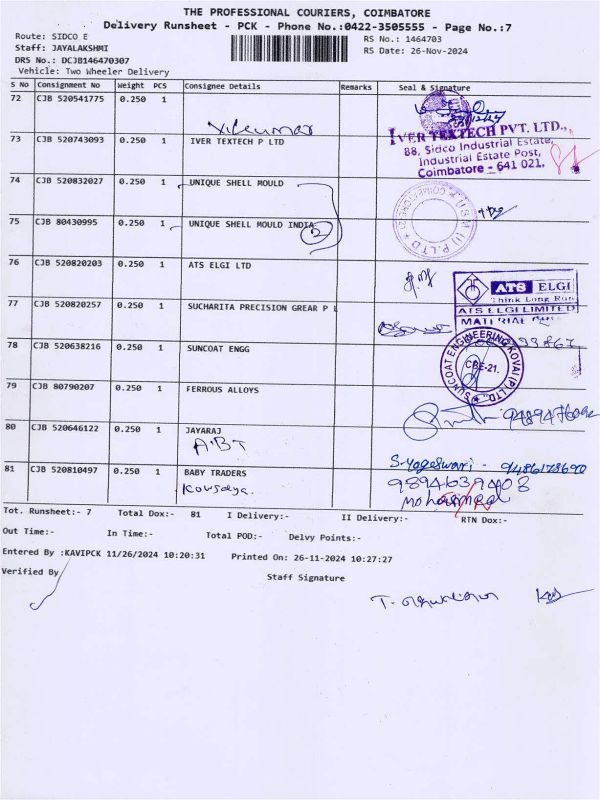 THE PROFESSIONAL COURIERS, COIMBATORE
Delivery Runsheet - PCK - Phone No.:0422-3505555 - Page No.:7
Route: SIDCO E
RS No.: 1464703
Staff: JAYALAKSHMI
RS Date: 26-Nov-2024
DRS No.: DCJB146470307
Vehicle: Two Wheeler Delivery
S No Consignment No Weight PCS Consignee Details Remarks Seal & Signature
72 CJB 520541775 0.250 1
73 CJB 520743093 0.250 1 IVER TEXTECH P LTD
IVER TEXTECH PVT. LTD.,
88, Sidco Industrial Estate,
Industrial Estate Post,
Coimbatore - 641 021.
74 CJB 520832027 0.250 1 UNIQUE SHELL MOULD
75 CJB 80430995 0.250 1 UNIQUE SHELL MOULD INDIA
2
76 CJB 520820203 0.250 1 ATS ELGI LTD
ATS ELGI
Think Long Run
ATS ELGI LIMITED
77 CJB 520820257 0.250 1 SUCHARITA PRECISION GREAR P L
78 CJB 520638216 0.250 1 SUNCOAT ENGG
SUNCOAT ENGINEERING KOVAI (P) LTD.
CBE-21.
79 CJB 80790207 0.250 1 FERROUS ALLOYS
80 CJB 520646122 0.250 1 JAYARAJ
A.B.T
S.yogeswari - 9486178690
81 CJB 520810497 0.250 1 BABY TRADERS
Kousalya.
9894639403
Mohammed
Tot. Runsheet:- 7 Total Dox:- 81 I Delivery:- II Delivery:- RTN Dox:-
Out Time:- In Time:- Total POD:- Delvy Points:-
Entered By :KAVIPCK 11/26/2024 10:20:31 Printed On: 26-11-2024 10:27:27
Verified By
Staff Signature